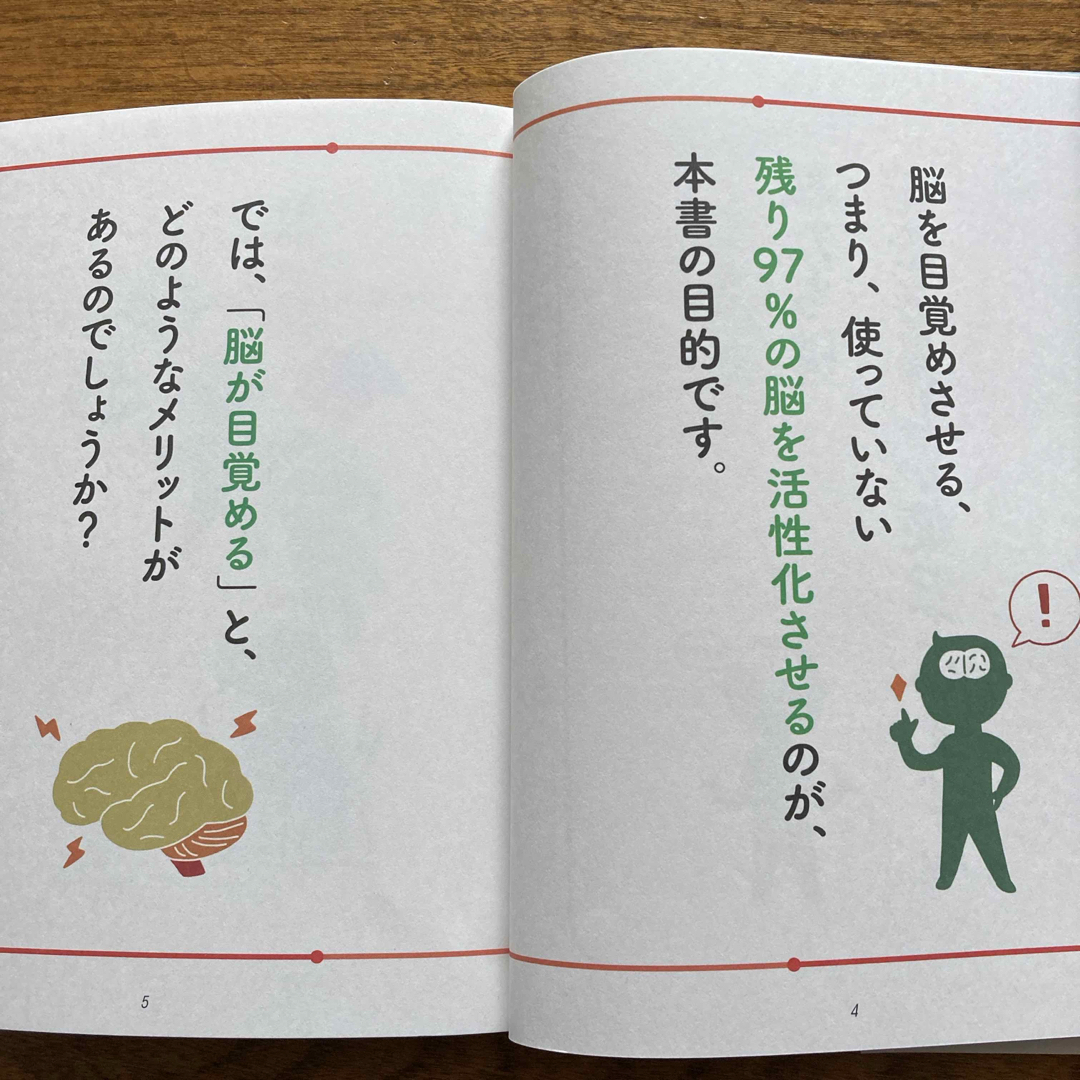 脳を目覚めさせる、
つまり、使っていない
残り97%の脳を活性化させるのが、
本書の目的です。
!
4
では、「脳が目覚める」と、
どのようなメリットが
あるのでしょうか?
5